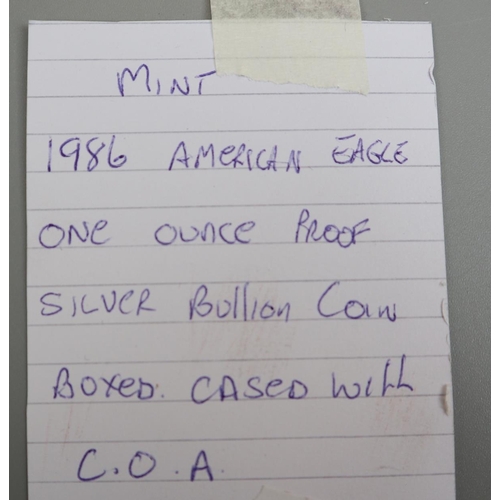 MINT
1986 AMERICAN EAGLE
ONE OUNCE PROOF
SILVER Bullion Coin
BOXED. CASED WITH
C.O.A.